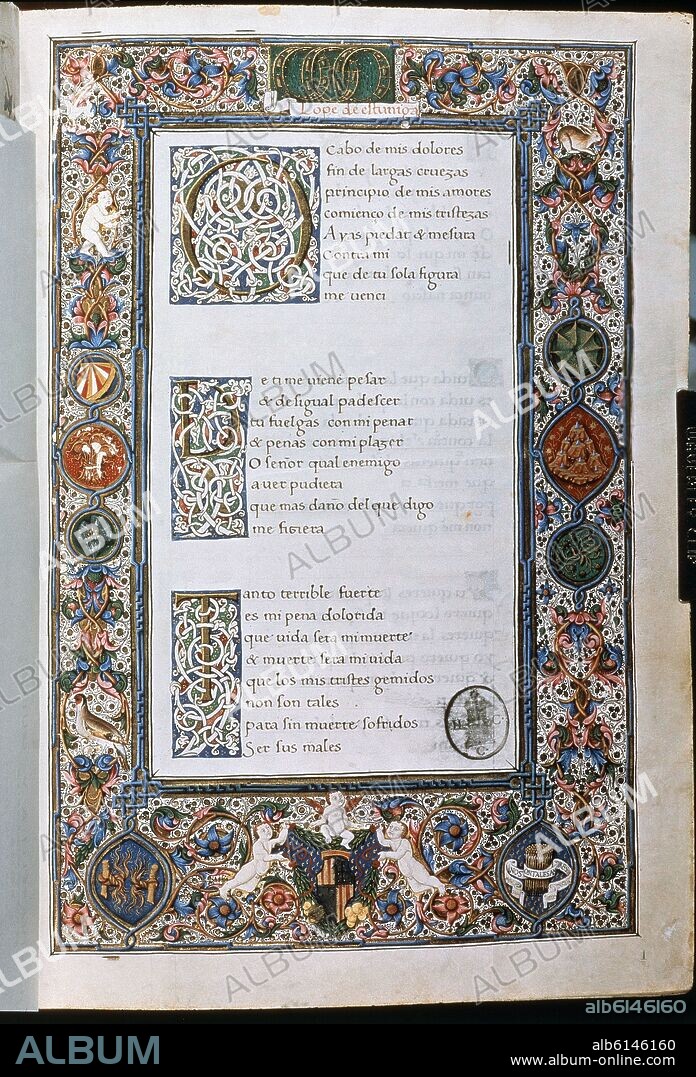 Lope de estuniga
O Cabo de mis dolores
fin de largas cruezas
principio de mis amores
comienço de mis tristezas
Ayas piedat & mesura
Contra mi
que de tu sola figura
me venci
De ti me viene pesar
& desigual padescer
tu fuelgas con mi penar
& penas con mi plazer
O señor qual enemigo
a ver pudiera
que mas daño del que digo
me fiziera
Tanto terrible fuerte
es mi pena dolorida
que vida sera mi muerte
& muerte sera mi vida
que los mis tristes gemidos
non son tales
para sin muerte sofridos
Ser sus males
ALBUM
alb6146160
ALBUM
alb6146160
www.album-online.com